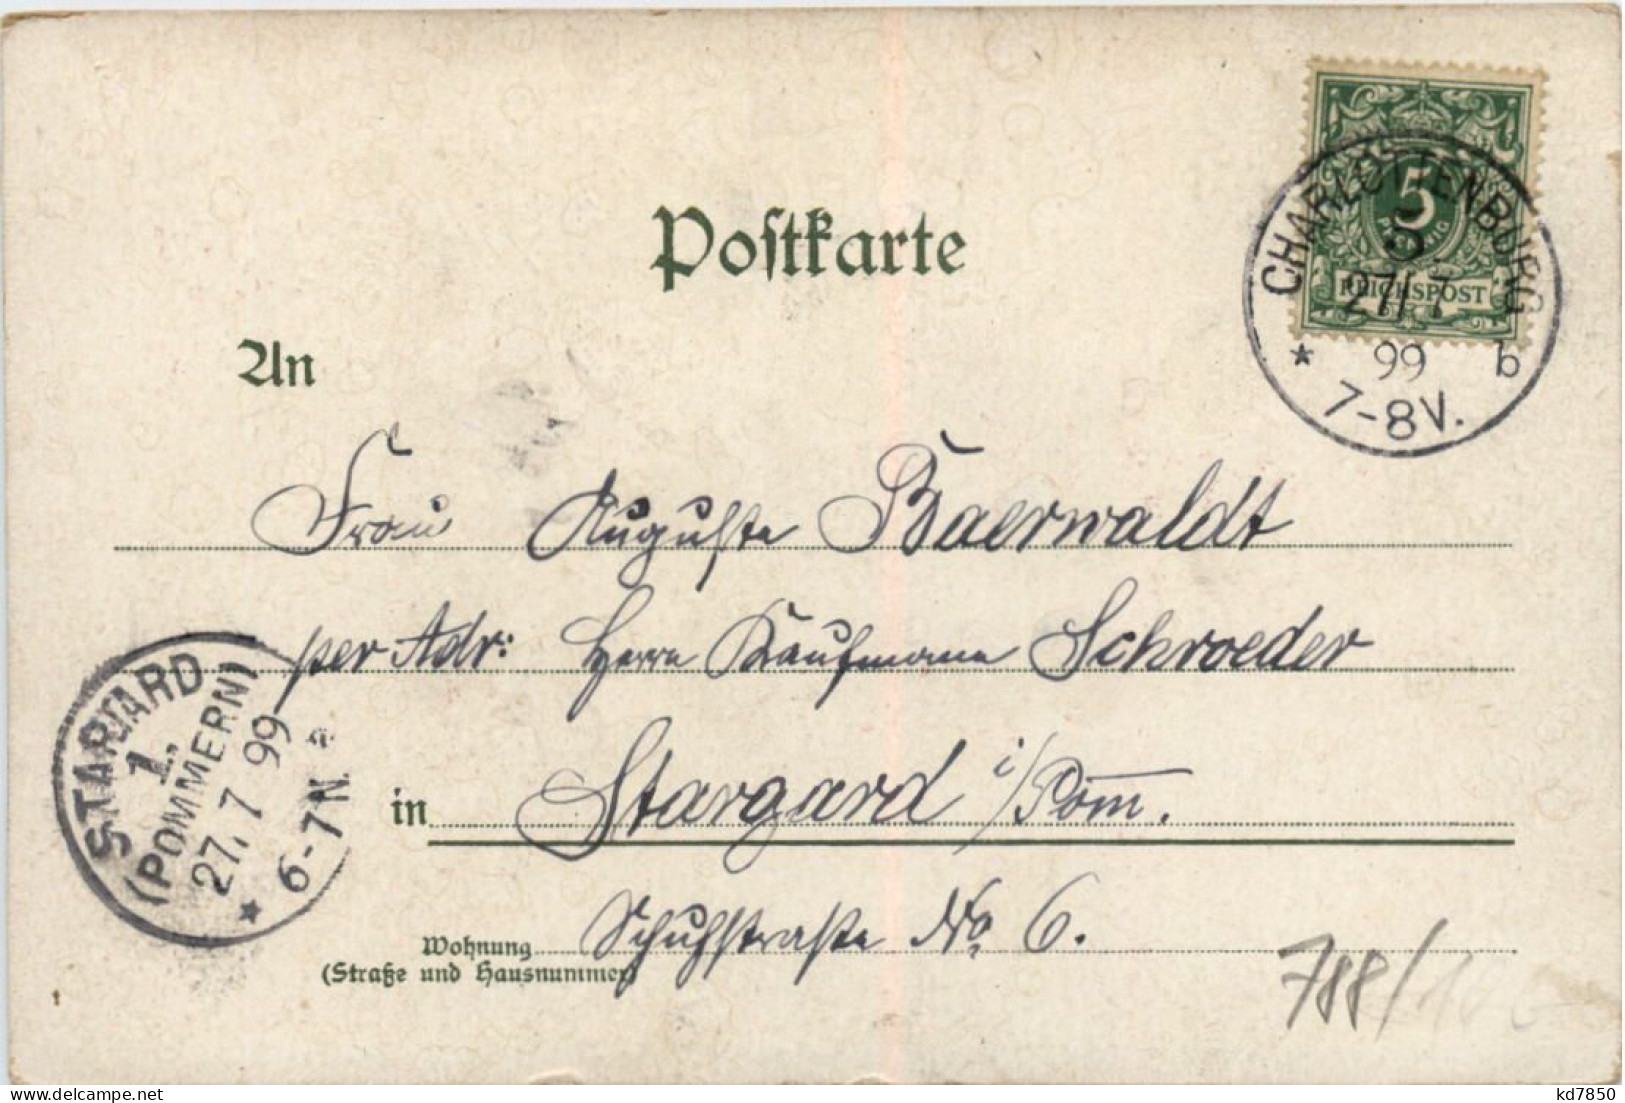 Postkarte
5
PFENNIG
REICHSPOST
CHARLOTTENBURG
5
27/7
99
* b
7-8V.
An
Frau Auguste Baerwaldt
per Adr: Herrn Kaufmann Schroeder
in Stargard i/Pom.
Wohnung Schuhstraße No 6.
(Straße und Hausnummer)
STARGARD
1.
(POMMERN)
27. 7 99
* 6-7N.
788/
kd7850